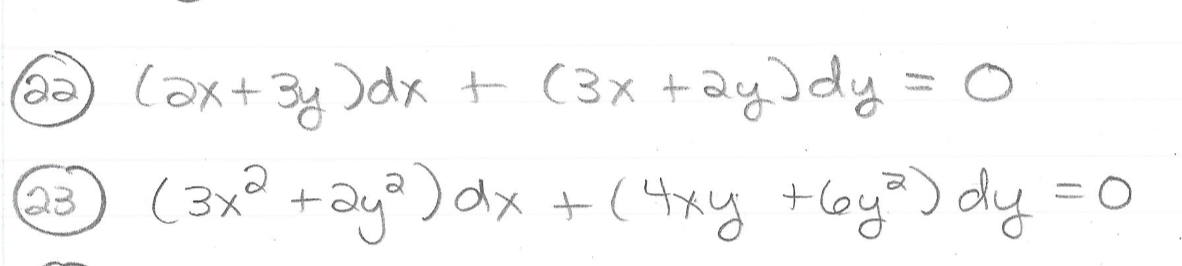 22 (2x+3y)dx + (3x+2y)dy = 0
23 (3x² +2y²)dx + (4xy +6y²)dy = 0